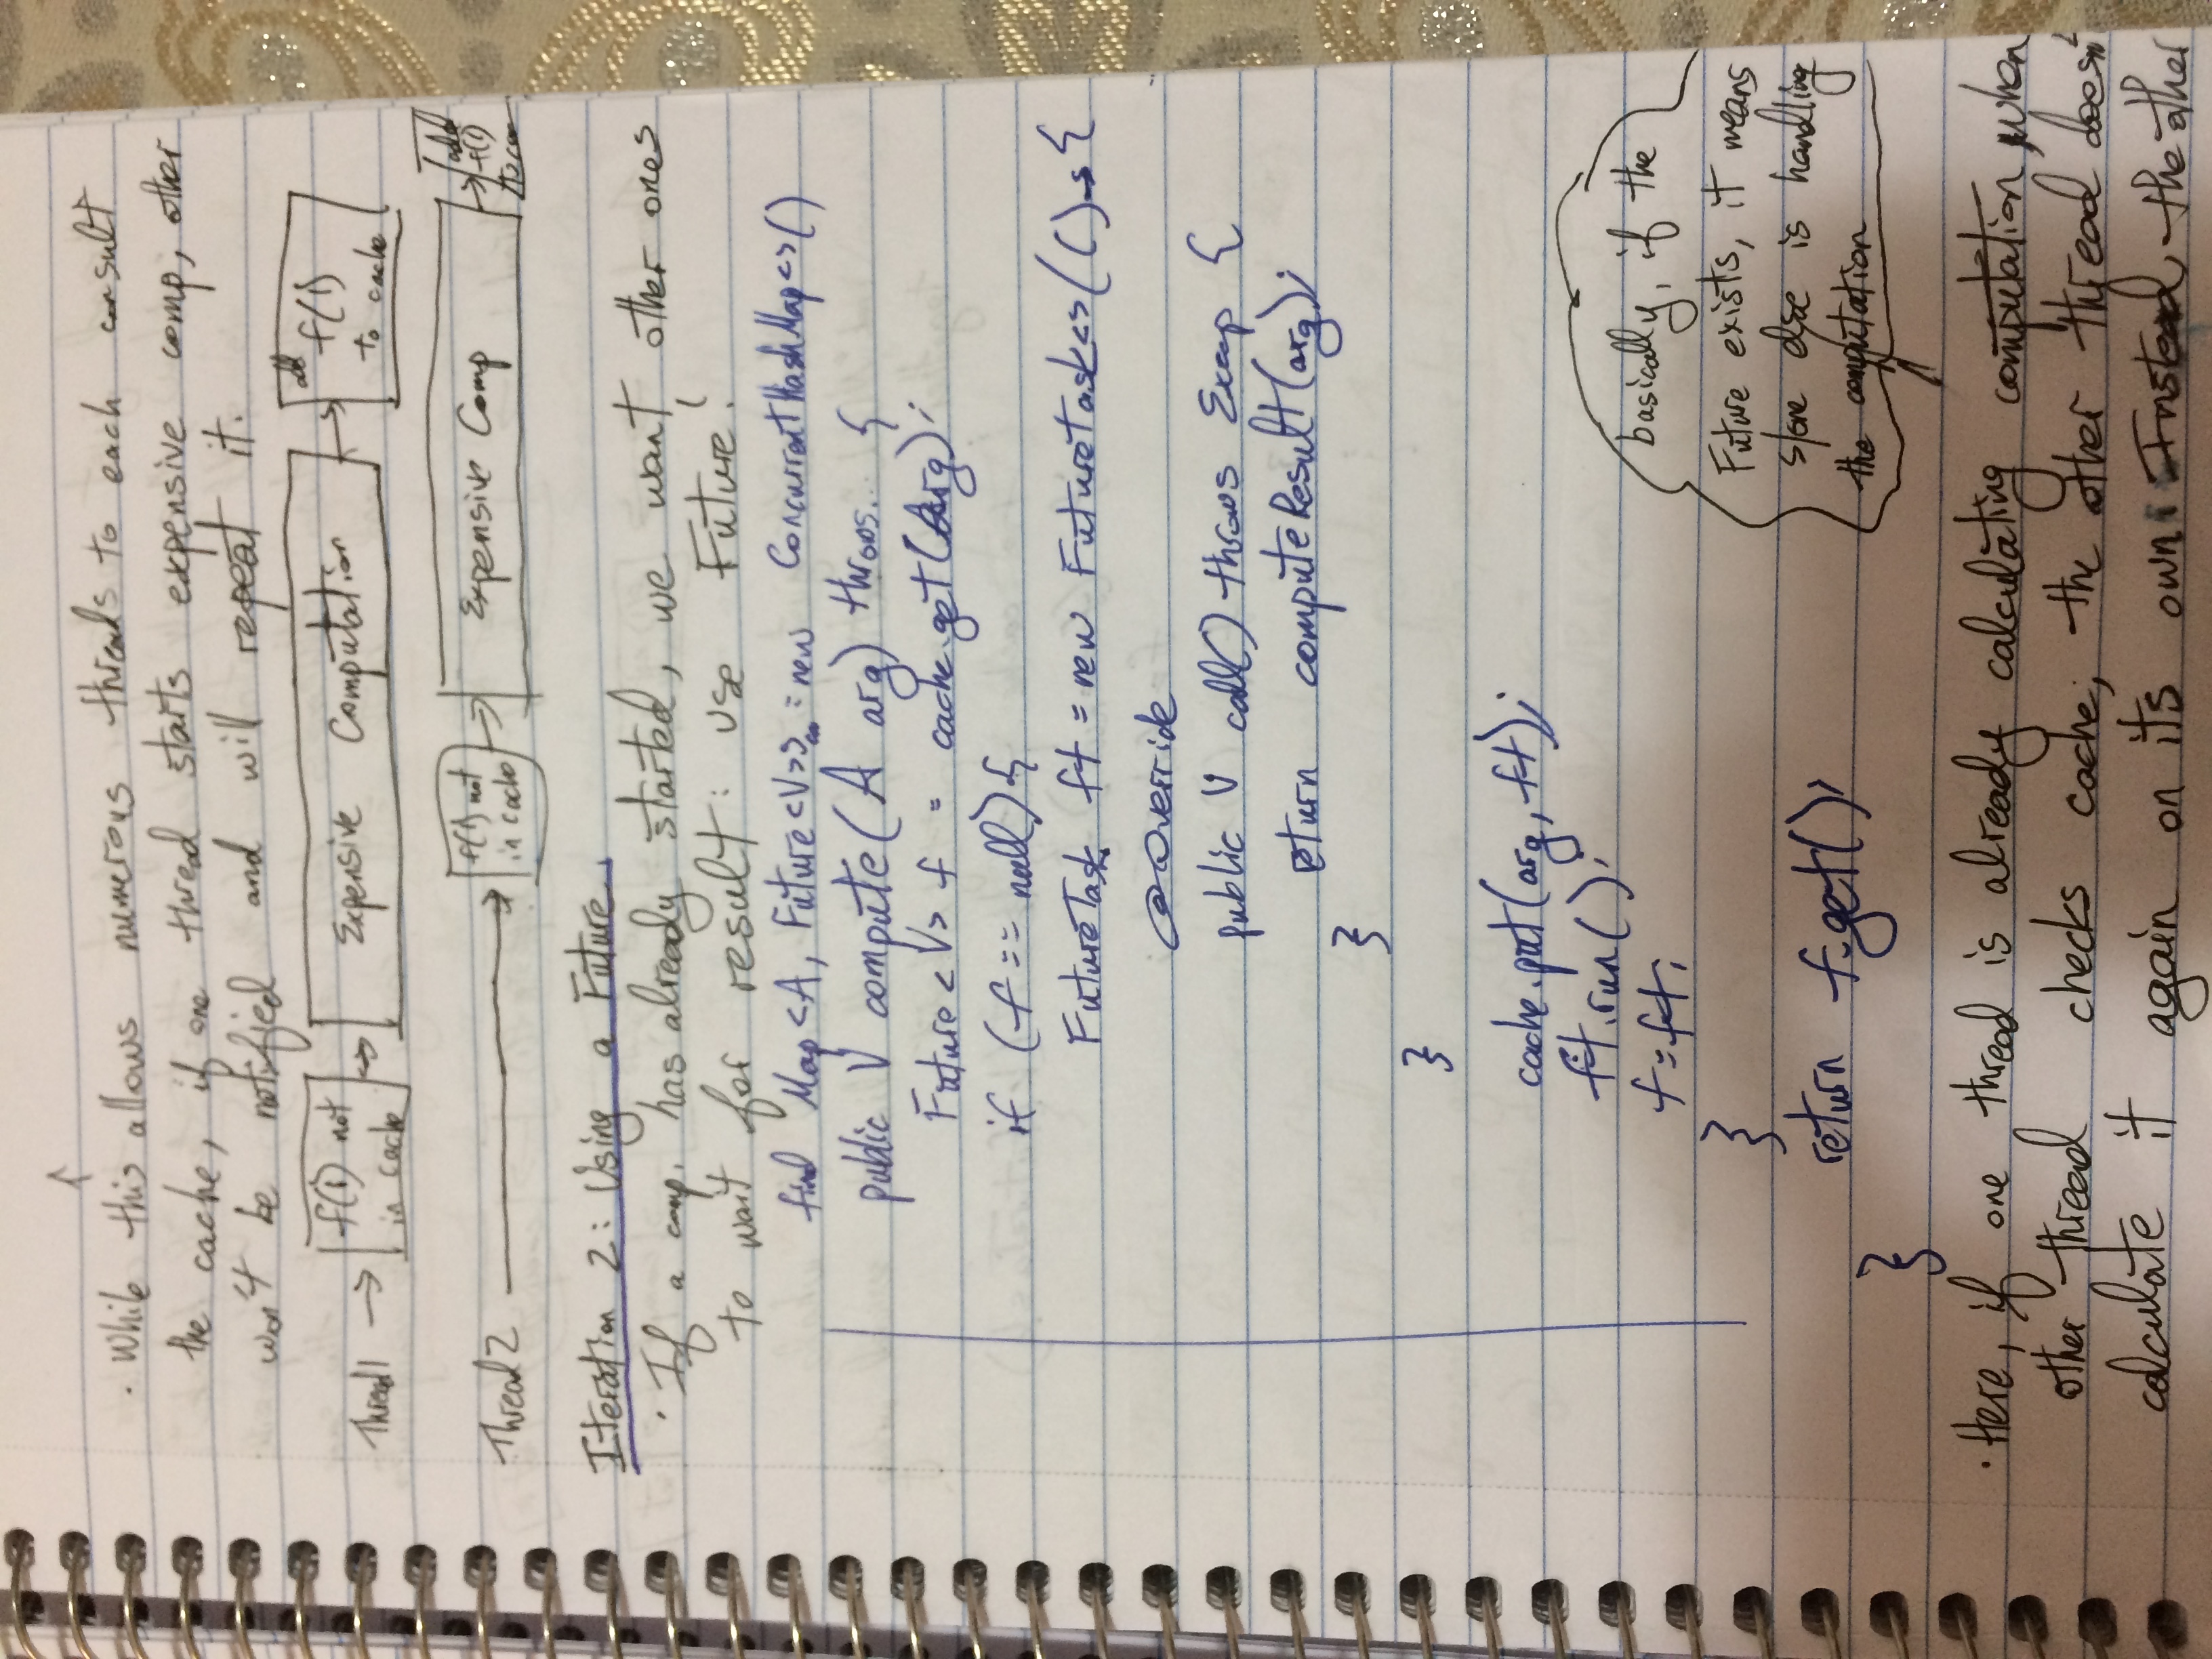 · While this allows numerous threads to each consult
the cache, if one thread starts expensive comp, other
won't be notified and will repeat it.
Thread1 → f(1) not in cache → Expensive Computation → add f(1) to cache
Thread 2 → f(1) not in cache → Expensive Comp → add f(1)
Iteration 2: Using a Future.
· If a comp. has already started, we want other ones
to wait for result: use Future!
Map<A, Future<V>> = new ConcurrentHashMap<>()
public V compute(A arg) throws... {
Future<V> f = cache.get(arg);
if (f == null) {
FutureTask ft = new FutureTask<>(() -> {
@Override
public V call() throws Excep {
return computeResult(arg);
}
}
cache.put(arg, ft);
ft.run();
f = ft;
}
return f.get();
}
basically, if the
Future exists, it means
s/one else is handling
the computation
· Here, if one thread is already calculating computation, when
other thread checks cache, the other thread doesn't
calculate it again on its own. Instead, the other